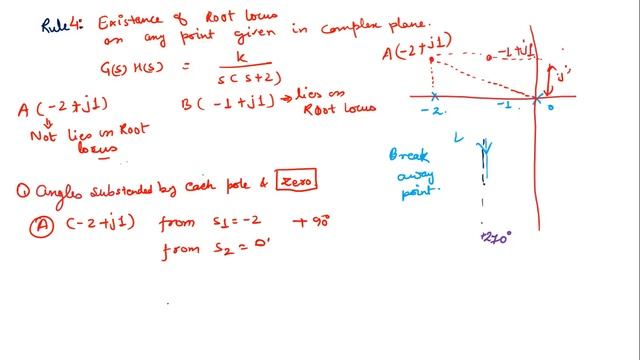 Rule 4: Existence of Root locus
on any point given in complex plane.
G(s) H(s) = k / s(s+2)
A(-2+j1)
B(-1+j1) → lies on
Root Locus
Not lies on Root
locus
A(-2+j1)
-1+j1
j1
-2
-1
0
Break
away
point.
+270°
① Angles substended by each pole & zero
Ⓐ (-2+j1) from s1 = -2 +90°
from s2 = 0